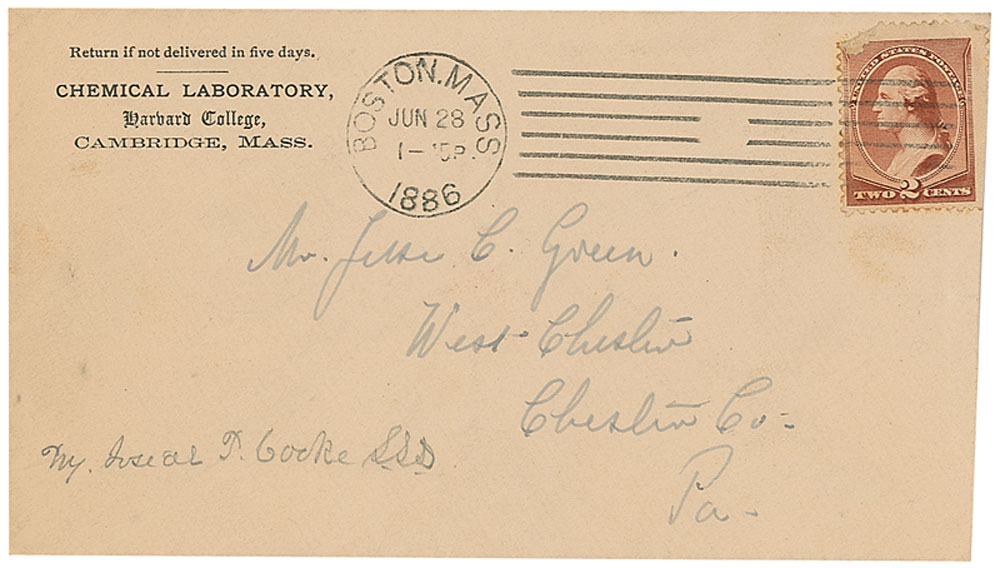 Return if not delivered in five days.
CHEMICAL LABORATORY,
Harvard College,
CAMBRIDGE, MASS.
BOSTON. MASS
JUN 28
1886
UNITED STATES POSTAGE
TWO 2 CENTS
Mr. Jesse C. Green.
West Chester
Chester Co-
Pa-
P. Cooke